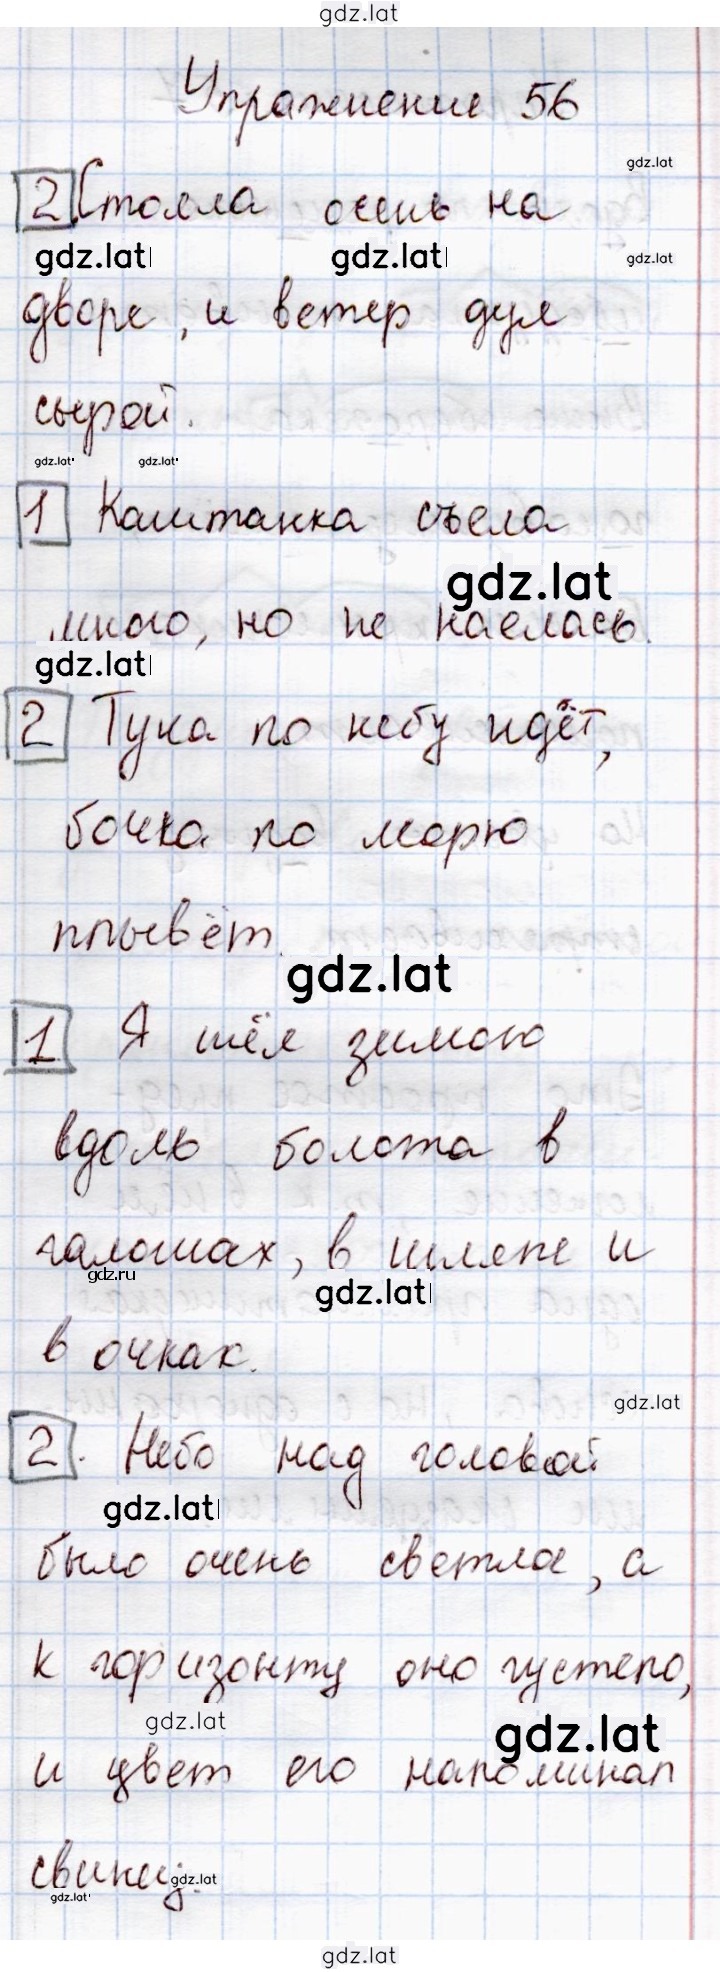 gdz.lat
Упражнение 56
gdz.lat
2 Стояла осень на
gdz.lat gdz.lat gdz.lat
дворе, и ветер дул
сырой.
gdz.lat gdz.lat
1 Каштанка съела
gdz.lat
много, но не наелась.
gdz.lat
2 Туча по небу идёт,
бочка по морю
плывёт.
gdz.lat
1 Я шёл зимою
вдоль болота в
галошах, в шляпе и
gdz.ru gdz.lat
в очках.
gdz.lat
2. Небо над головой
gdz.lat
было очень светлое, а
к горизонту оно густело,
gdz.lat gdz.lat
и цвет его напоминал
свинец.
gdz.lat gdz.lat
gdz.lat